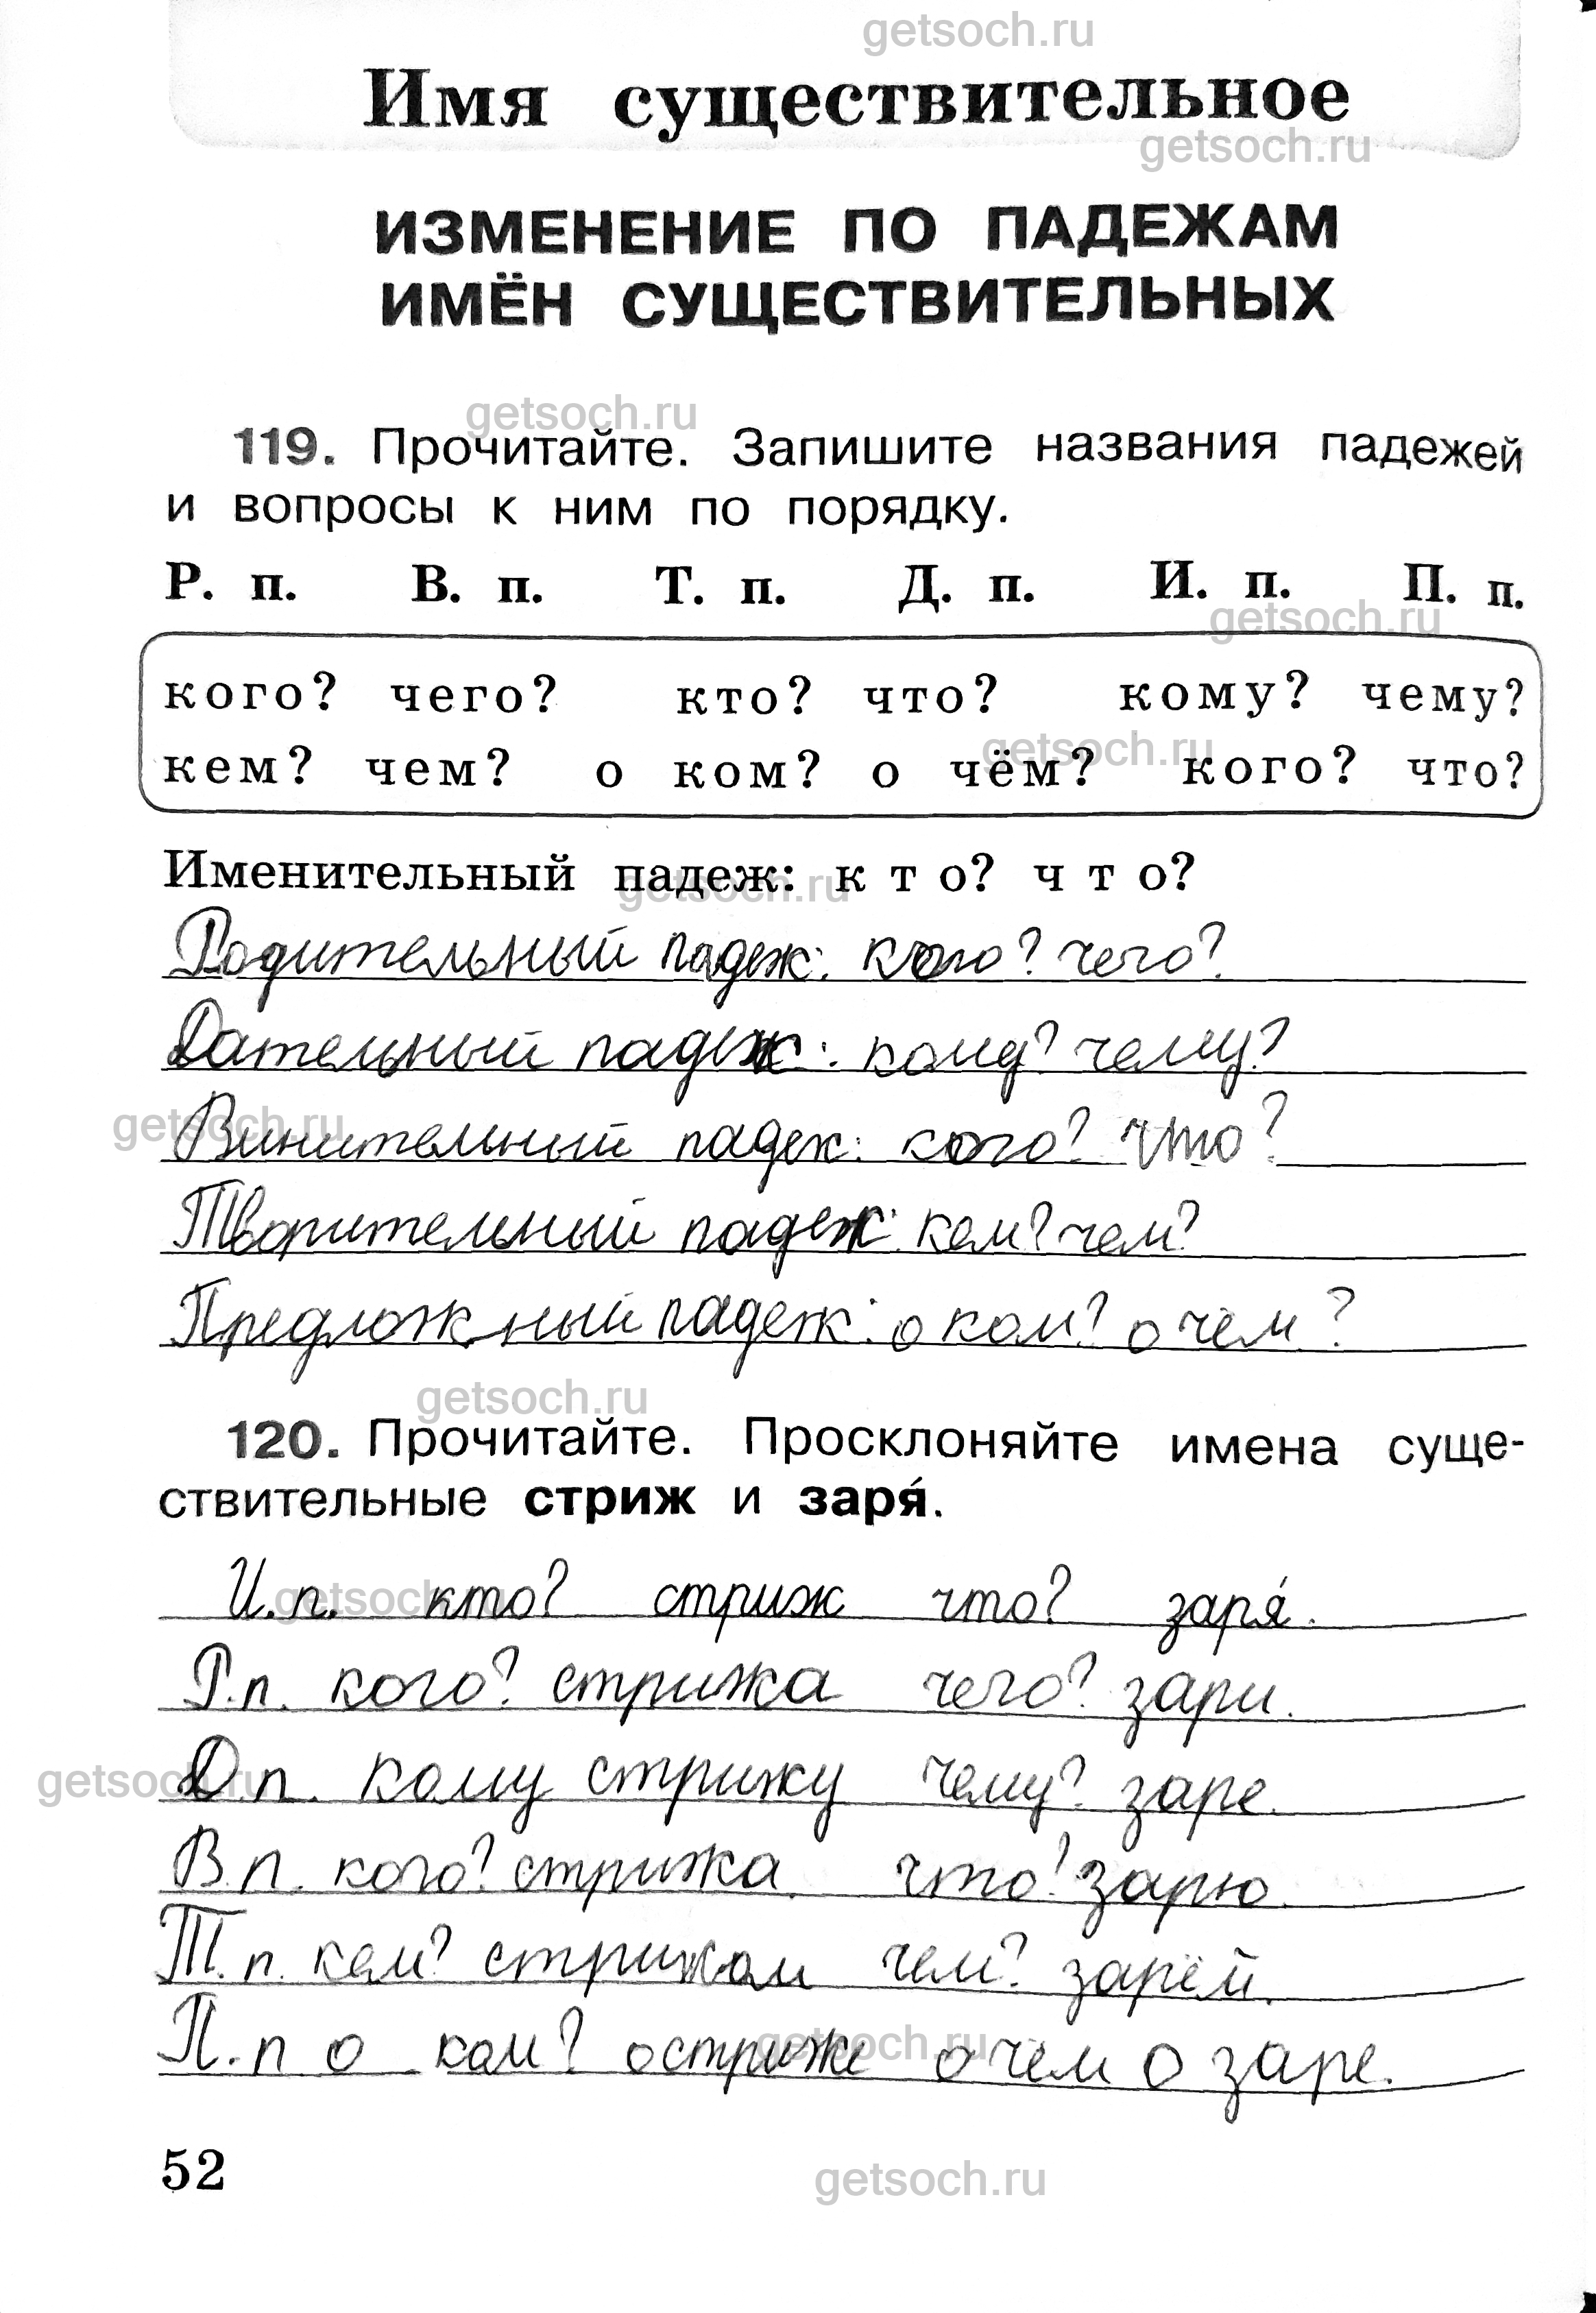 getsoch.ru
Имя существительное
getsoch.ru
ИЗМЕНЕНИЕ ПО ПАДЕЖАМ
ИМЁН СУЩЕСТВИТЕЛЬНЫХ
getsoch.ru
119. Прочитайте. Запишите названия падежей
и вопросы к ним по порядку.
Р. п. В. п. Т. п. Д. п. И. п. П. п.
getsoch.ru
кого? чего? кто? что? кому? чему?
getsoch.ru
кем? чем? о ком? о чём? кого? что?
Именительный падеж: кто? что?
getsoch.ru
Родительный падеж: кого? чего?
Дательный падеж: кому? чему?
getsoch.ru
Винительный падеж: кого? что?
Творительный падеж: кем? чем?
Предложный падеж: о ком? о чём?
getsoch.ru
120. Прочитайте. Просклоняйте имена суще-
ствительные стриж и заря́.
getsoch.ru
И.п. кто? стриж что? заря́.
Р.п. кого? стрижа чего? зари.
getsoch.ru
Д.п. кому стрижу чему? заре.
В.п. кого? стрижа. что? зарю.
Т.п. кем? стрижом чем? зарёй.
getsoch.ru
П.п о ком? о стриже о чём о заре.
52
getsoch.ru